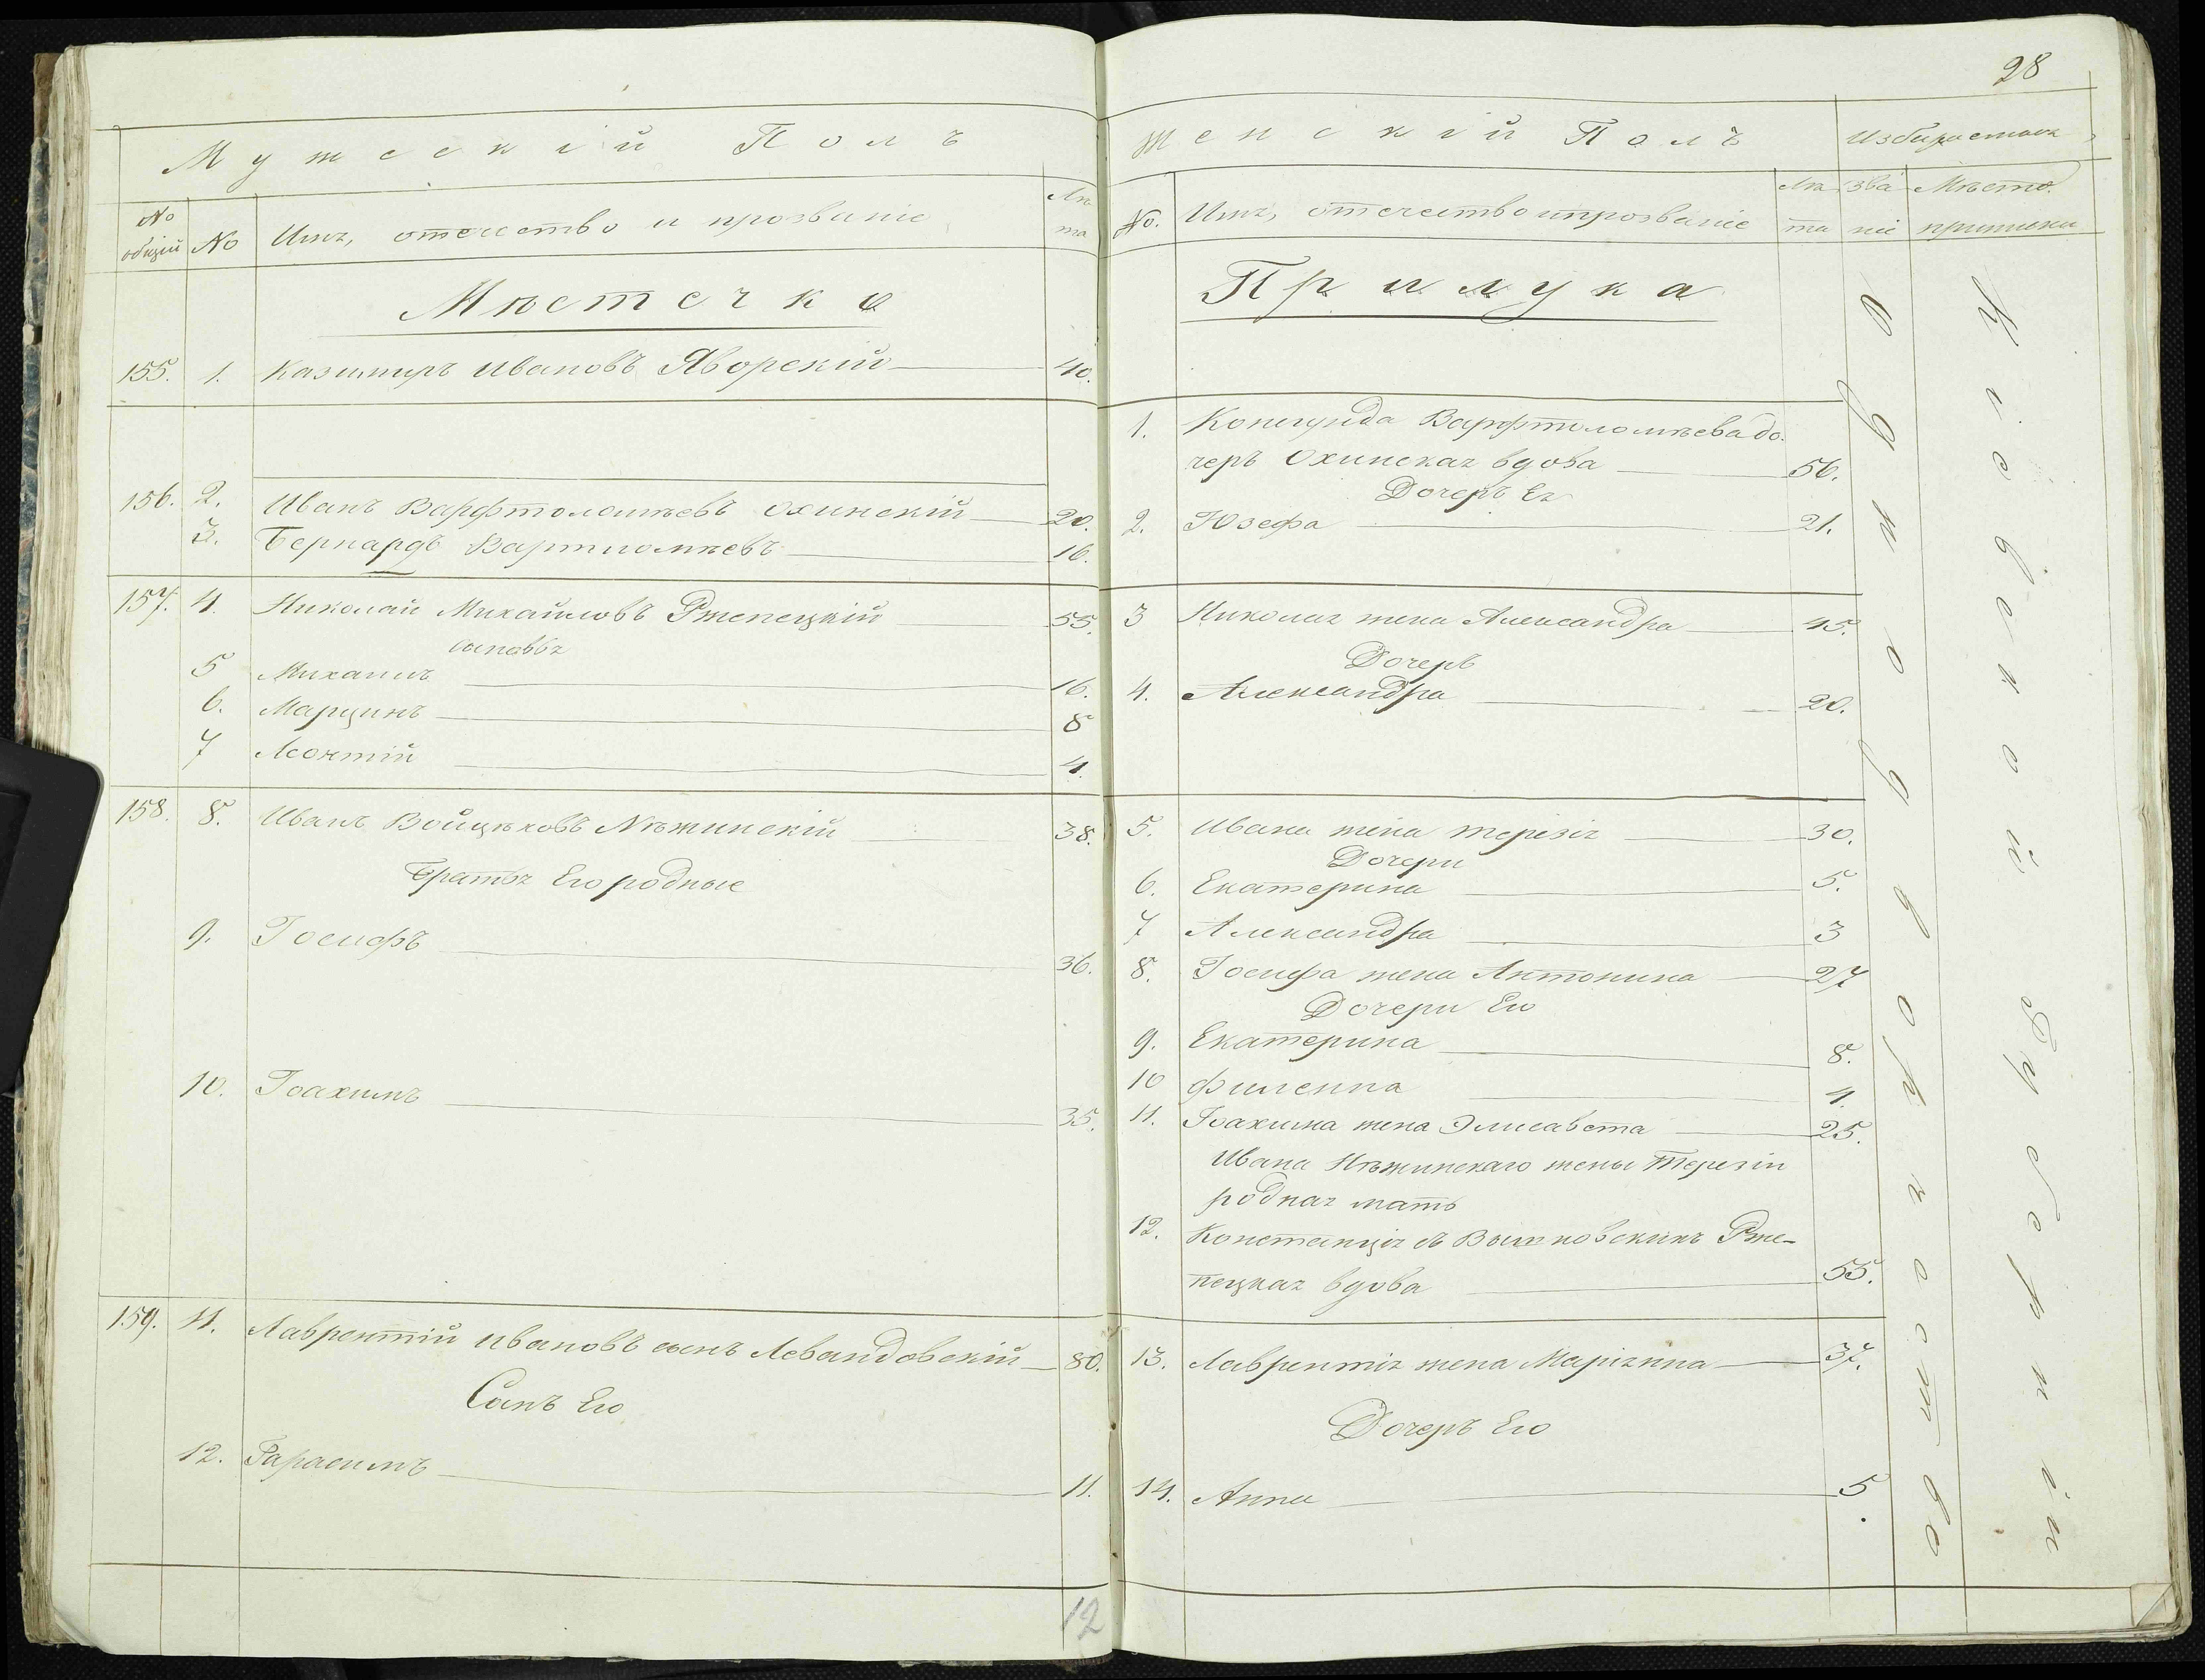 28
Мужескій Полъ
№ общій
№
Имя, отечество и прозваніе
Лѣта
Мѣстечко
155. 1. Казимиръ Ивановъ Яворскій 40.
156. 2. Иванъ Варфтоломѣевъ Охинскій 20.
3. Бернардъ Вартломѣевъ 16.
157. 4. Николай Михайловъ Ржепецкій 55.
сыновья
5 Михаилъ 16.
6. Марцинъ 8
7 Леонтій 4.
158. 8. Иванъ Войцѣховъ Нѣжинскій 38.
Братья Его родные
9. Іосифъ 36.
10. Іоахимъ 35.
159. 11. Лаврентій Ивановъ сынъ Левандовскій 80.
Сынъ Его
12. Гарасимъ 11.
12
Женскій Полъ
Избирается
№.
Имя, отечество и прозваніе
Лѣта
Званіе
Мѣсто приписки
Прилука
1. Конегунда Варфтоломѣева до-
черъ Охинская вдова 56.
Дочеръ Ея
2. Юзефа 21.
3 Николая жена Александра 45.
Дочеръ
4. Александра 20.
5. Ивана жена Терезія 30.
Дочери
6. Екатерина 5.
7 Александра 3
8. Іосифа жена Антонина 27
Дочери Его
9. Екатерина 8.
10 Филенна 4.
11. Іоахима жена Элисавета 25.
Ивана Нѣжинскаго жены Терезіи
родная мать
12. Констанція съ Рже-
пецкая вдова 55.
13. Лаврентія жена Маріянна 37.
Дочеръ Его
14. Анна 5.
Однодворчество
Кіевской Губерніи